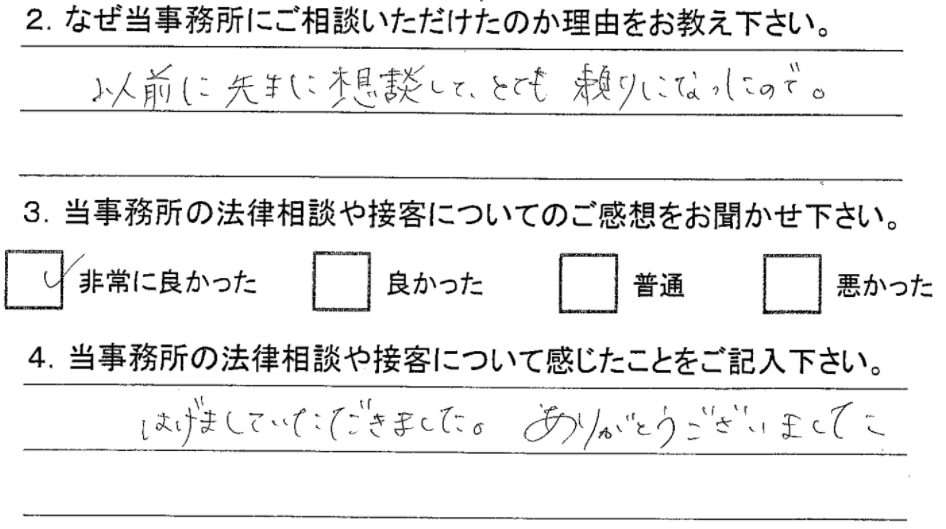 2. なぜ当事務所にご相談いただけたのか理由をお教え下さい。
以前に先生に想談して、とても頼りになったので。
3. 当事務所の法律相談や接客についてのご感想をお聞かせ下さい。
非常に良かった 良かった 普通 悪かった
4. 当事務所の法律相談や接客について感じたことをご記入下さい。
はげましていただきました。ありがとうございました